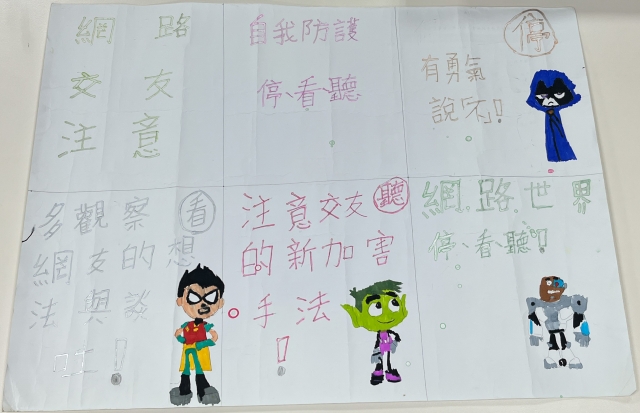 網路
交友
注意
自我防護
停、看、聽
停
有勇氣
說不!
看
多觀察
網友的想
法與談
吐!
聽
注意交友
的新加害
手法
!
網.路.世界
停、看、聽!